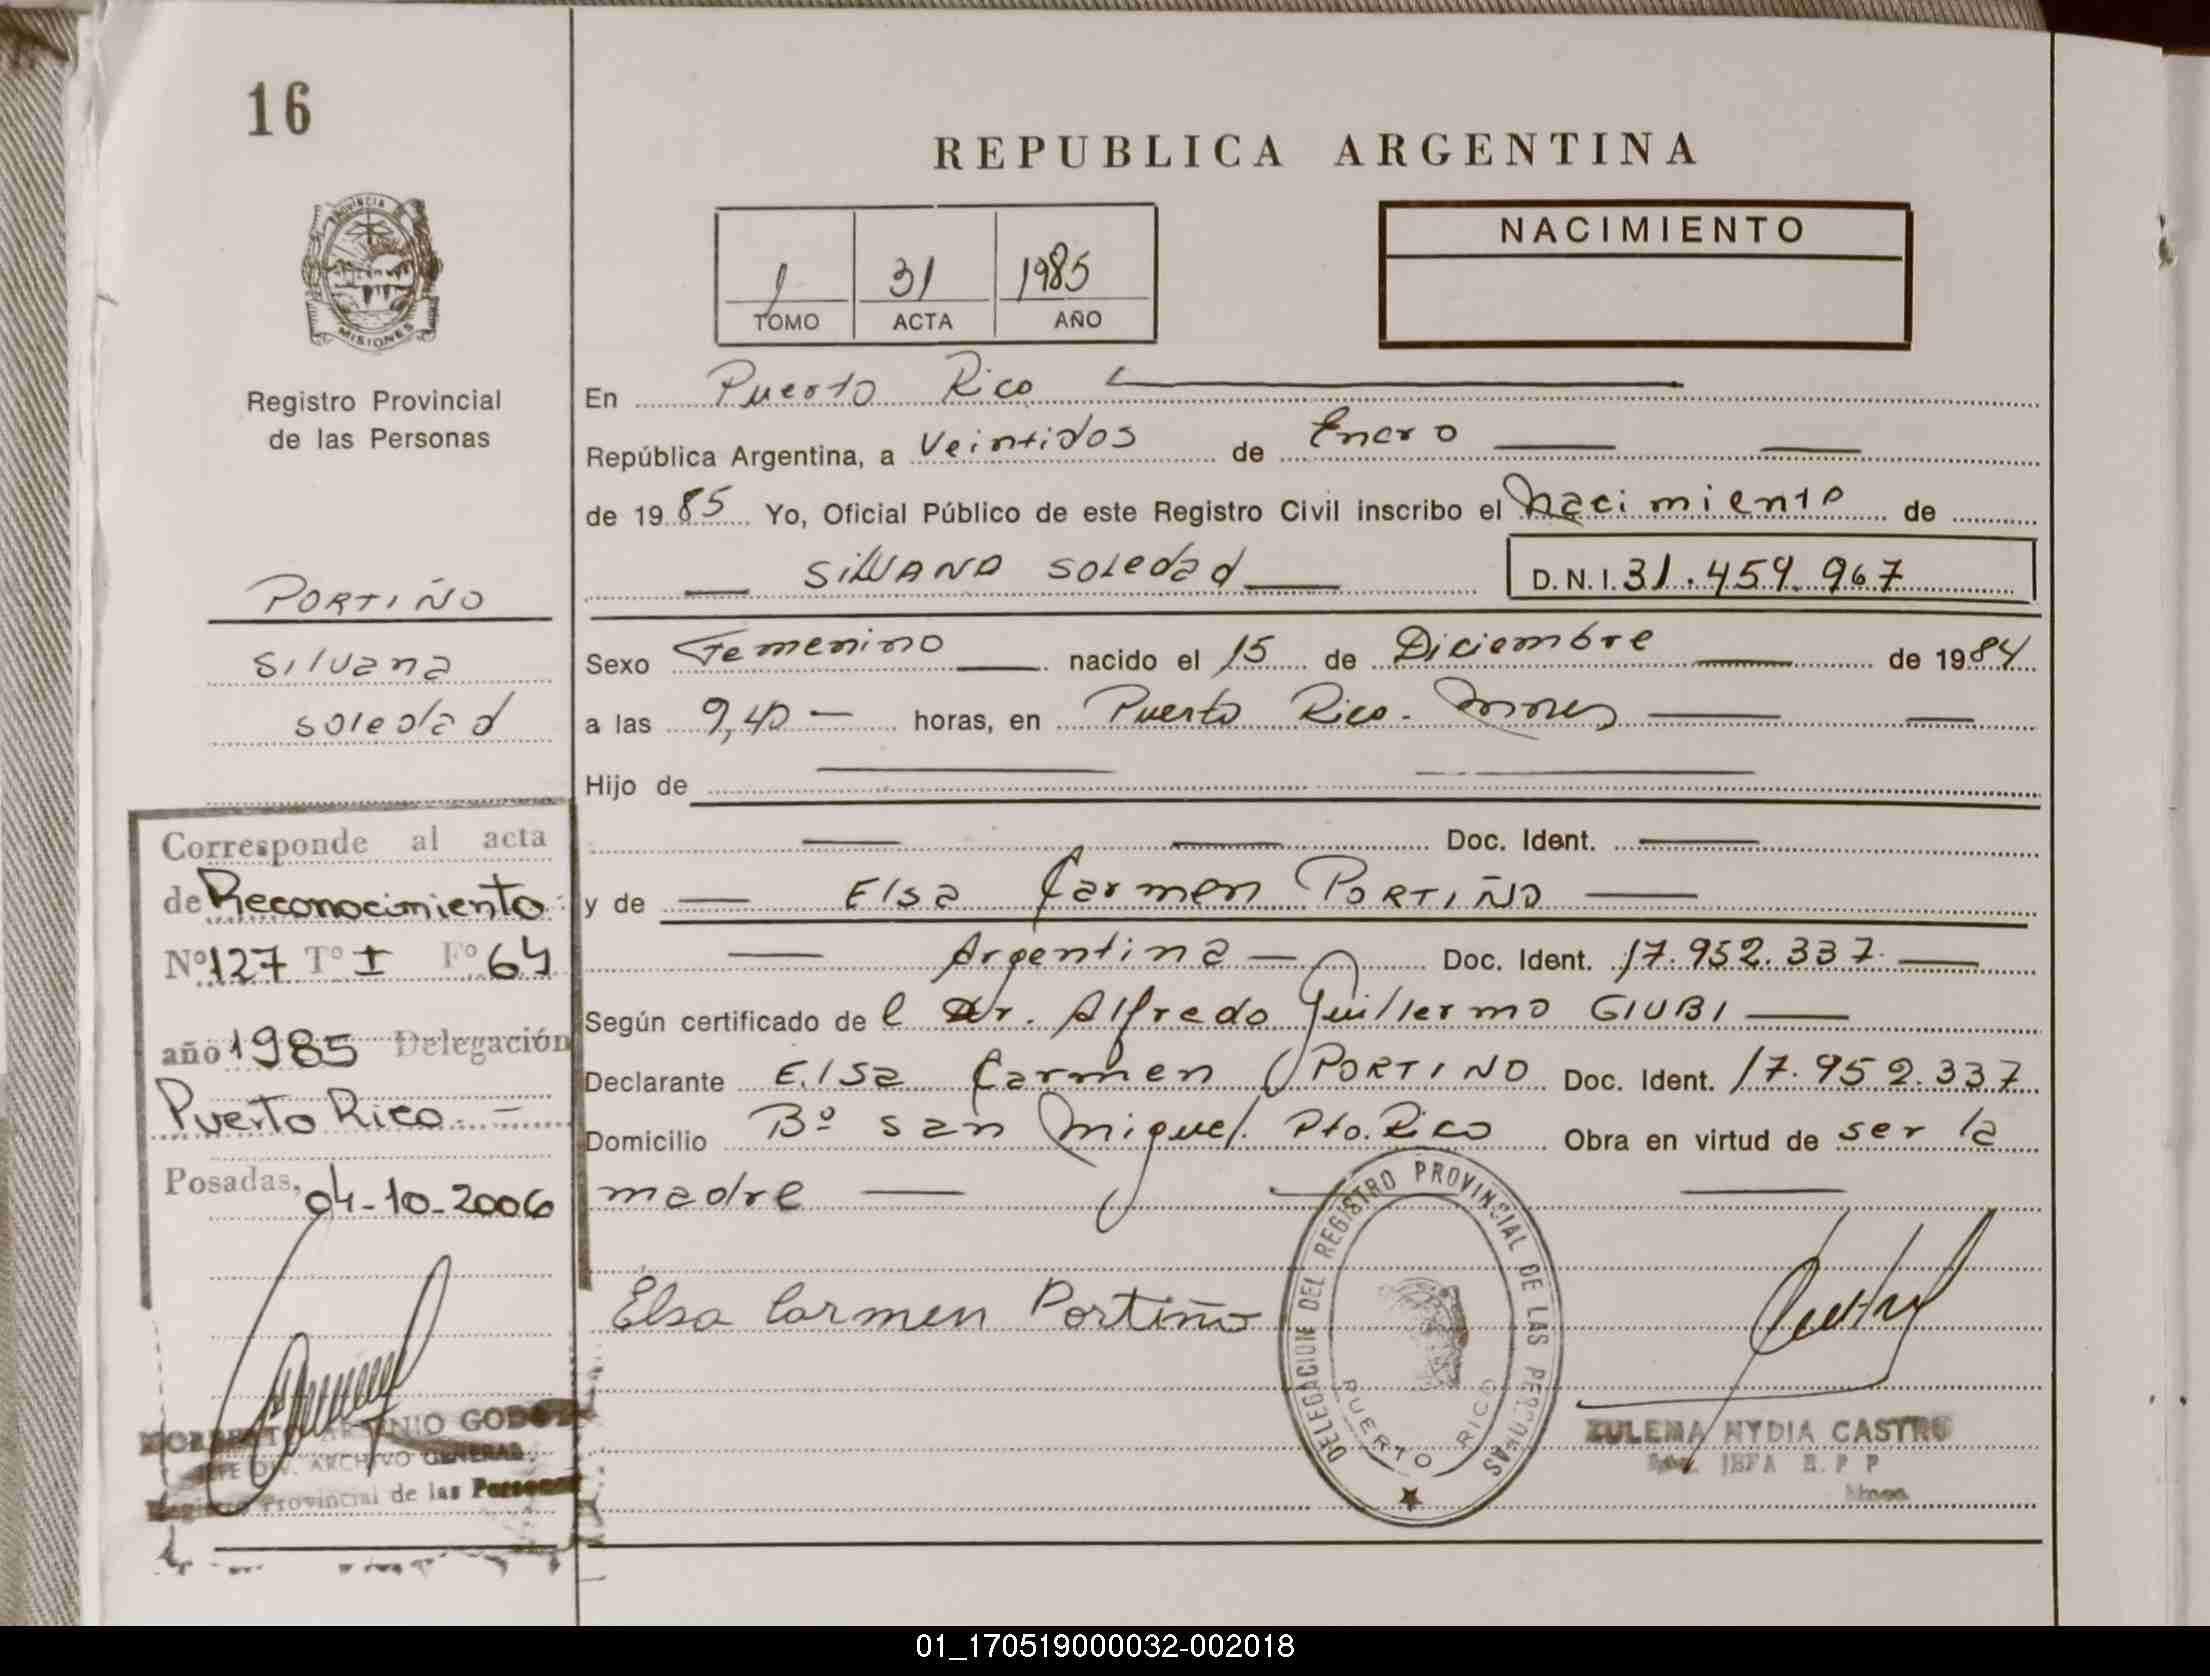 16
REPUBLICA ARGENTINA
PROVINCIA DE
MISIONES
Registro Provincial
de las Personas
1 31 1985
TOMO ACTA AÑO
NACIMIENTO
En Puerto Rico
República Argentina, a Veintidos de Enero
de 1985 Yo, Oficial Público de este Registro Civil inscribo el Nacimiento de
Silvana Soledad D.N.I. 31.459.967
PORTIÑO
Silvana
Soledad
Sexo Femenino nacido el 15 de Diciembre de 1984
a las 9,40 horas, en Puerto Rico - Mnes
Hijo de
Doc. Ident.
y de Elsa Carmen PORTIÑO
Argentina Doc. Ident. 17.952.337
Según certificado del Dr. Alfredo Guillermo GIUBI
Declarante Elsa Carmen PORTIÑO Doc. Ident. 17.952.337
Domicilio Bº San Miguel. Pto. Rico Obra en virtud de ser la
madre
Corresponde al acta
de Reconocimiento
Nº 127 Tº I Fº 64
año 1985 Delegación
Puerto Rico.-
Posadas, 04-10-2006
Elsa Carmen Portiño
DELEGACION DEL REGISTRO PROVINCIAL DE LAS PERSONAS
PUERTO RICO
NORBERTO ANTONIO GODOY
JEFE DIV. ARCHIVO GENERAL
Registro Provincial de las Personas
ZULEMA NYDIA CASTRO
JEFA R. P P
01_170519000032-002018